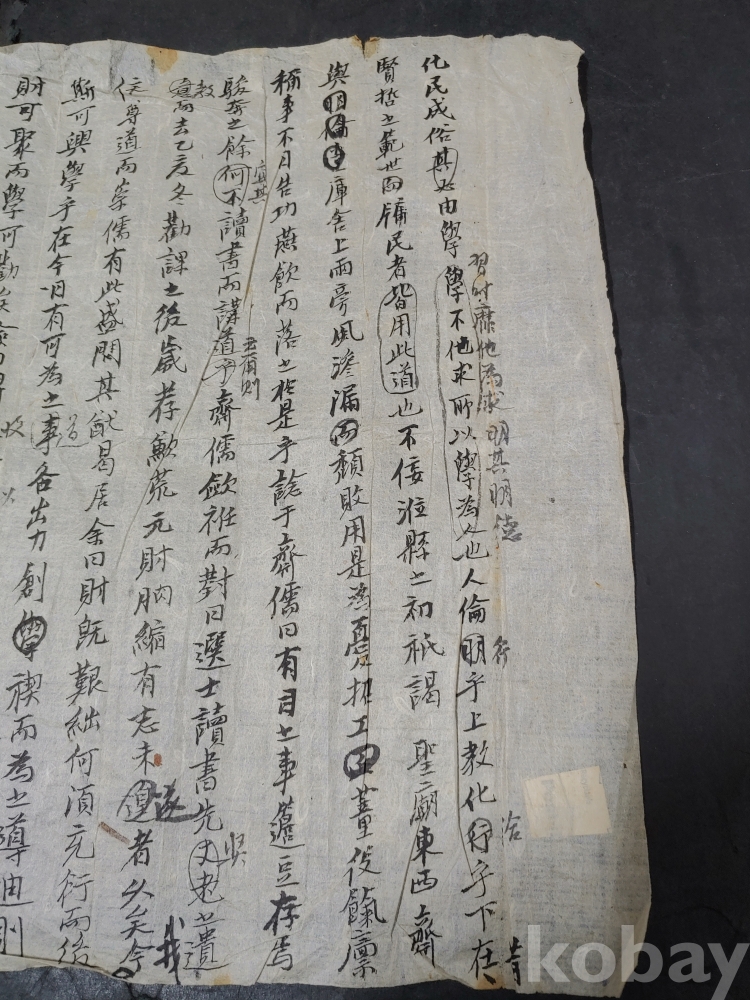 化民成俗其必由學學不他求所以學為人也人倫明乎上教化行乎下在昔
習 他為求明其明德
行
洽
賢哲之範世而牖民者皆用此道也不佞涖縣之初祗謁 聖廟東西齋
與明倫堂庫舍上雨旁風滲漏而頹敗用是為憂招工董役餼廩
稱事不日告功燕飲而落之於是乎諗于齋儒曰有司之事籩豆存焉
駿奔之餘何不讀書而講道乎齋儒斂袵而對曰選士讀書先丈老遺
宜其
去乙亥冬勸課之後歲荐歉荒元財朒縮有志未遑者久矣今
教
遂
我
侯尊道而崇儒有此盛問其猷曷居余曰財旣艱絀何須充衍而後
斯可興學乎在今日有可為之事各出力創學稧而為之導迪則
道
財可聚而學可勸
kobay